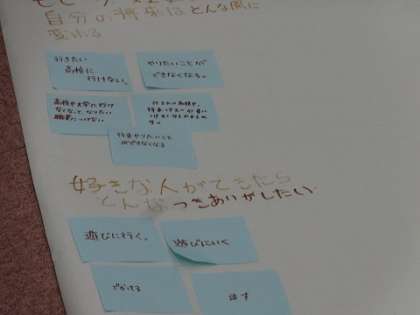 自分の将来はどんな風に
変わる
行きたい
高校に
行けない。
やりたいことが
できなくなる。
高校や大学に行け
なくなって なりたい
職業につけない
将来やりたいこと
ができなくなる
好きな人ができたら
どんな つきあいがしたい
遊びに行く。
遊びにいく
でかける
話す